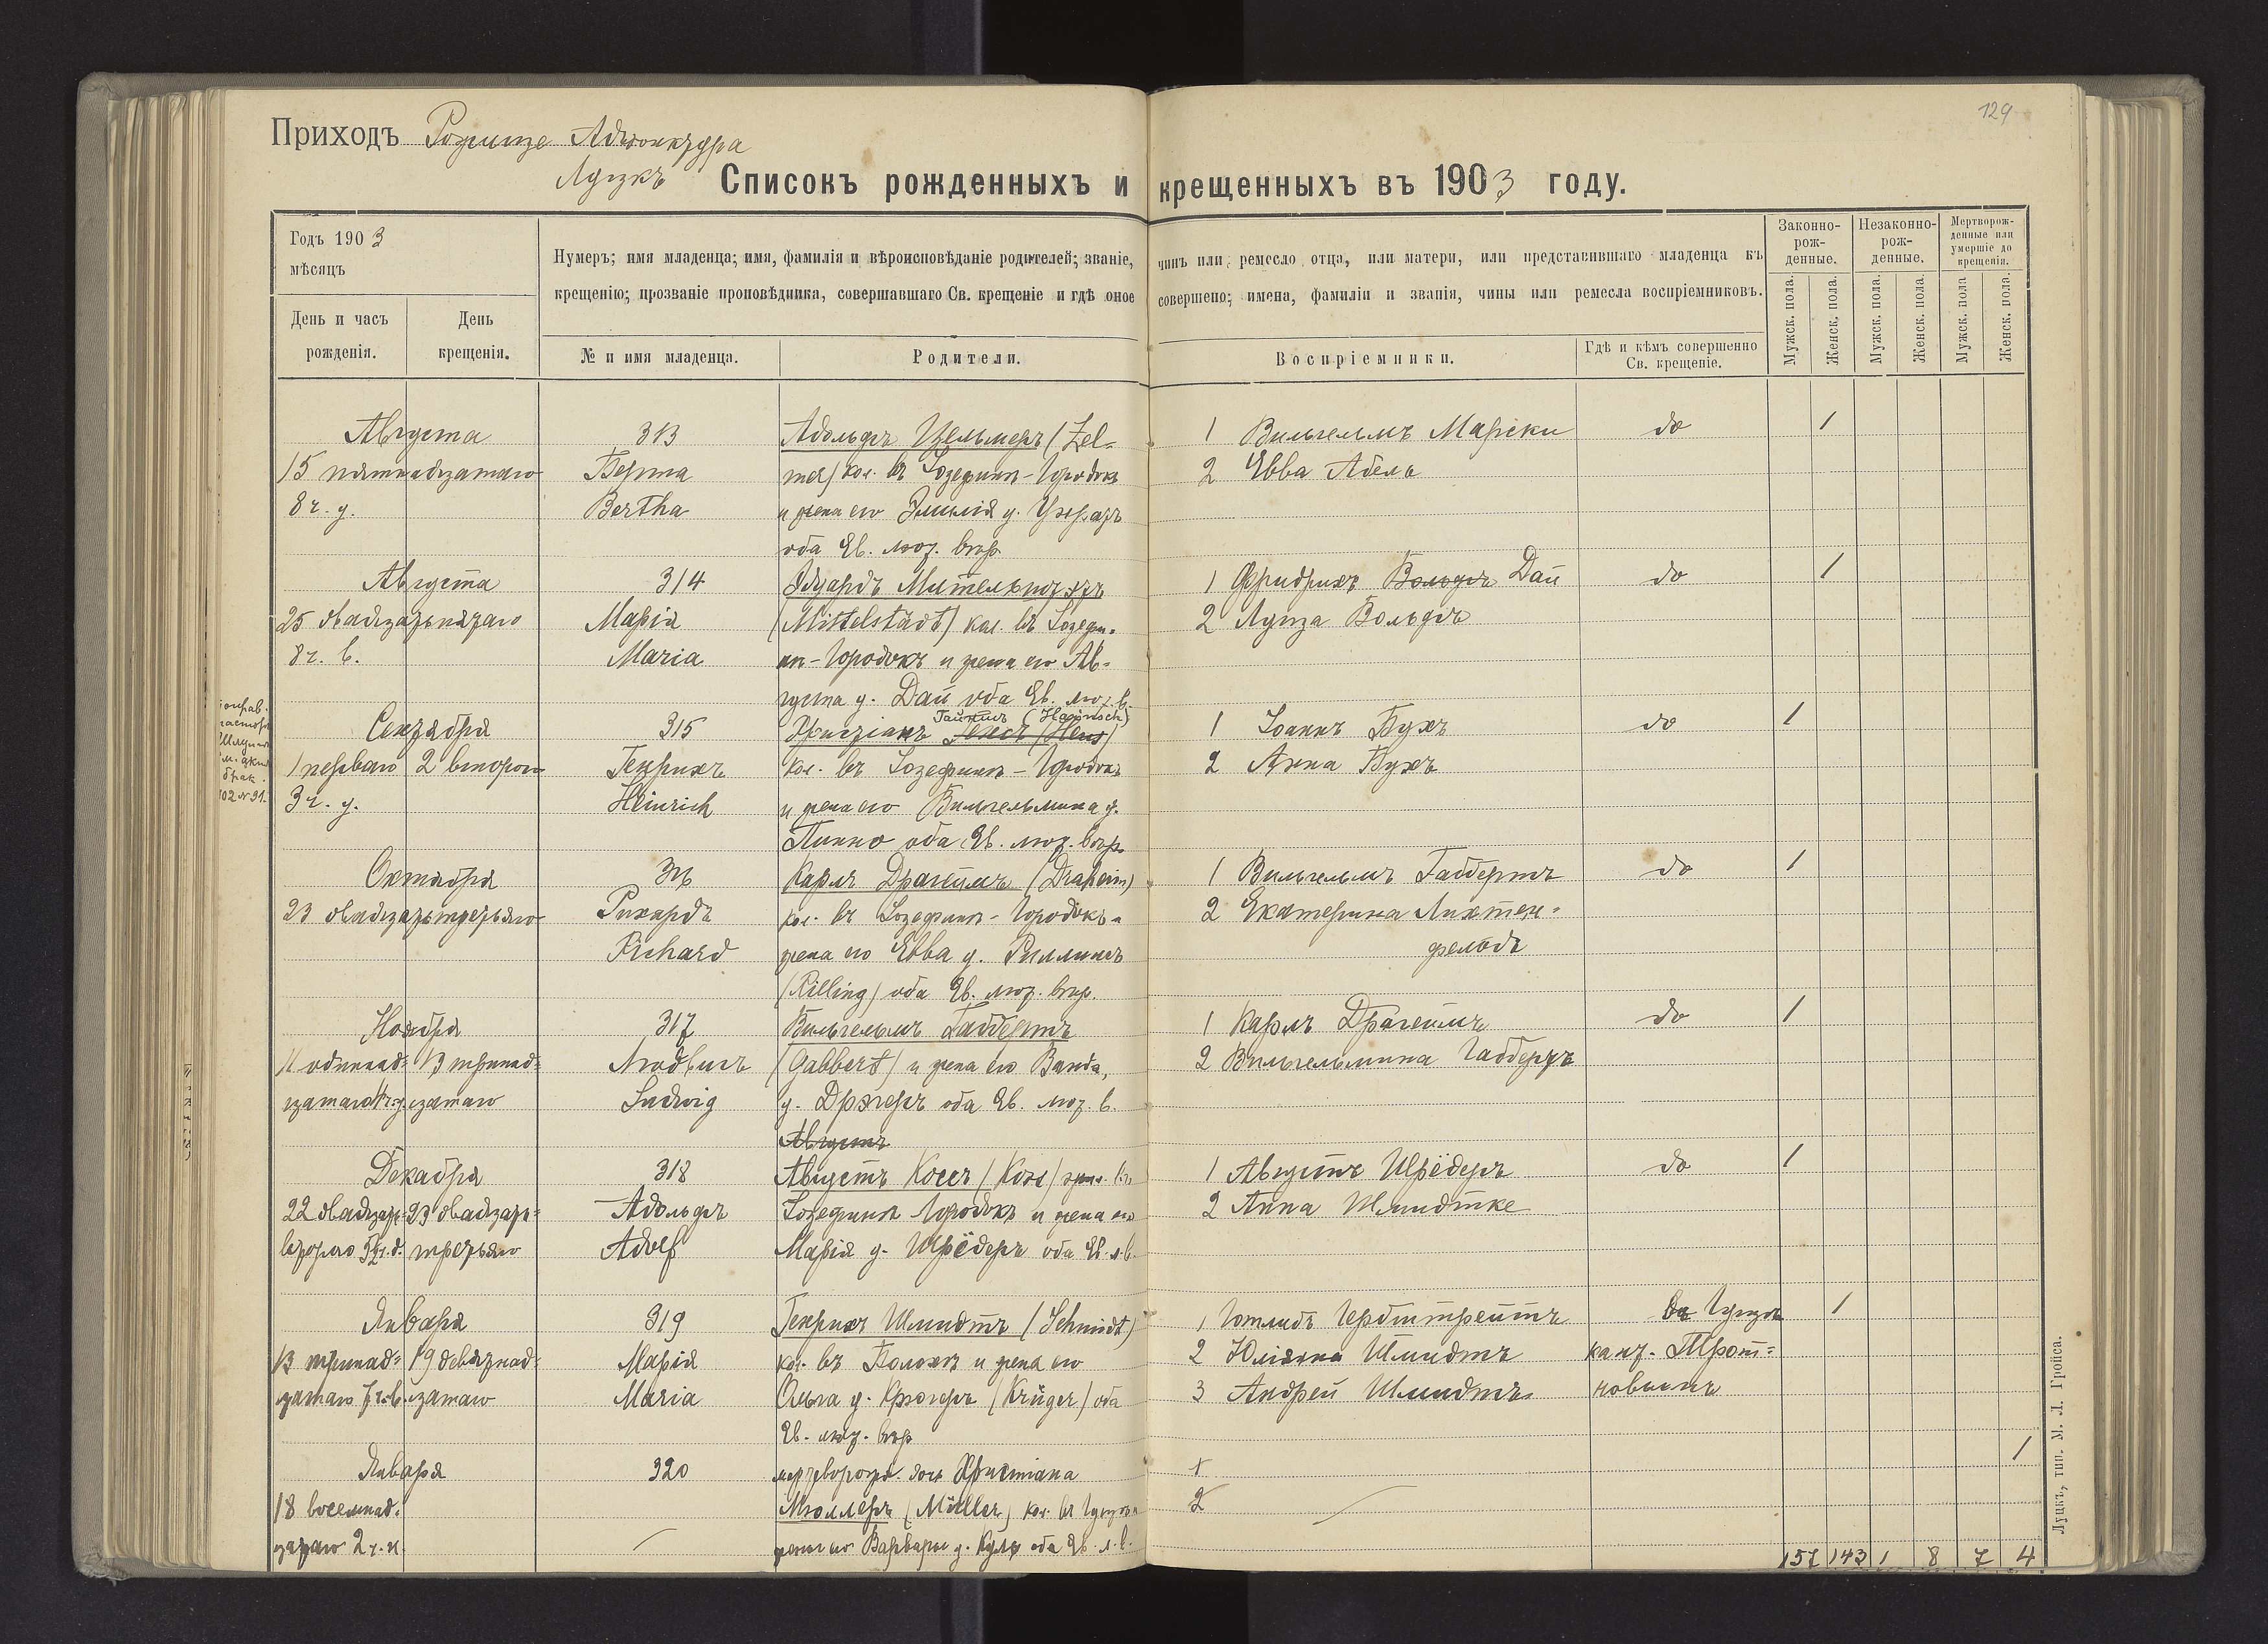 129
Приходъ Рожище Адъюнктура
Луцкъ
Списокъ рожденныхъ и крещенныхъ въ 1903 году.
Годъ 1903
мѣсяцъ
День и часъ рожденія.
День крещенія.
Нумеръ; имя младенца; имя, фамилія и вѣроисповѣданіе родителей; званіе, чинъ или ремесло отца, или матери, или представившаго младенца къ
крещенію; прозваніе проповѣдника, совершавшаго Св. крещеніе и гдѣ оное совершено; имена, фамиліи и званія, чины или ремесла воспріемниковъ.
№ и имя младенца.
Родители.
Воспріемники.
Гдѣ и кѣмъ совершенно Св. крещеніе.
Законно-рож-денные.
Незаконно-рож-денные.
Мертворож-денные или умершіе до крещенія.
Мужск. пола.
Женск. пола.
Мужск. пола
Женск. пола
Мужск. пола
Женск. пола.
Августа 313 Адольфъ Цельмеръ (Zel- 1 Вильгельмъ Марски до 1
15 пятнадцатаго Берта mer) кол. въ Іозефинъ-Городокъ 2 Евва Абель
8 ч. у. Bertha и жена его Эмилія у.
оба Ев. лют. вѣр.
Августа 314 Эдуардъ Мительштэтъ 1 Фридрихъ Вольфъ Дай до 1
25 двадцатьпятаго Марія (Mittelstädt) кол. въ Іозефи- 2 Луиза Вольфъ
8 ч. в. Maria нъ-Городокъ и жена его Ав-
густа у. Дай оба Ев. лют. в.
Гайнишъ (Hainisch)
Сентября 315 Христіанъ (Hens) 1 Іоаннъ Бухъ до 1
1 перваго 2 второго Генрихъ кол. въ Іозефинъ-Городокъ 2 Анна Бухъ
3 ч. у. Heinrich и жена его Вильгельмина у.
Пинно оба Ев. лют. вѣр.
Октября 316 Карлъ Драгеймъ (Draheim) 1 Вильгельмъ Габбертъ до 1
23 двадцатьтретьяго Рихардъ кол. въ Іозефинъ-Городокъ и 2 Екатерина Лихтен-
Richard жена его Евва у. Риллингъ фельдъ
(Rilling) оба Ев. лют. вѣр.
Ноября 317 Вильгельмъ Габбертъ 1 Карлъ Драгеймъ до 1
11 одиннад- 13 тринад- Людвигъ (Gabbert) и жена его Ванда, 2 Вильгельмина Габбертъ
цатаго цатаго Ludwig у. Дрэгеръ оба Ев. лют. в.
Августъ
Декабря 318 Августъ Коссъ (Koss) въ 1 Августъ Шрёдеръ до 1
22 двадцать- 23 двадцать- Адольфъ Іозефинъ Городокъ и жена его 2 Анна Шмидтке
второго третьяго Adolf Марія у. Шрёдеръ оба Ев. л. в.
Января 319 Генрихъ Шмидтъ (Schmidt) 1 Готлибъ въ 1
13 тринад- 19 девятнад- Марія кол. въ и жена его 2 Юліянна Шмидтъ кант.
цатаго 7 ч. в. цатаго Maria Ольга у. Крюгеръ (Krüger) оба 3 Андрей Шмидтъ
Ев. лют. вѣр
Января 320 мертворожд. дочь Христіана 1 1
18 восемнад- Мюллеръ (Müller) кол. въ 2
цатаго 2 ч. н. жены его Варвары у. оба Ев. л. в.
157 143 1 8 7 4
Луцкъ, тип. М. Л. Гройса.